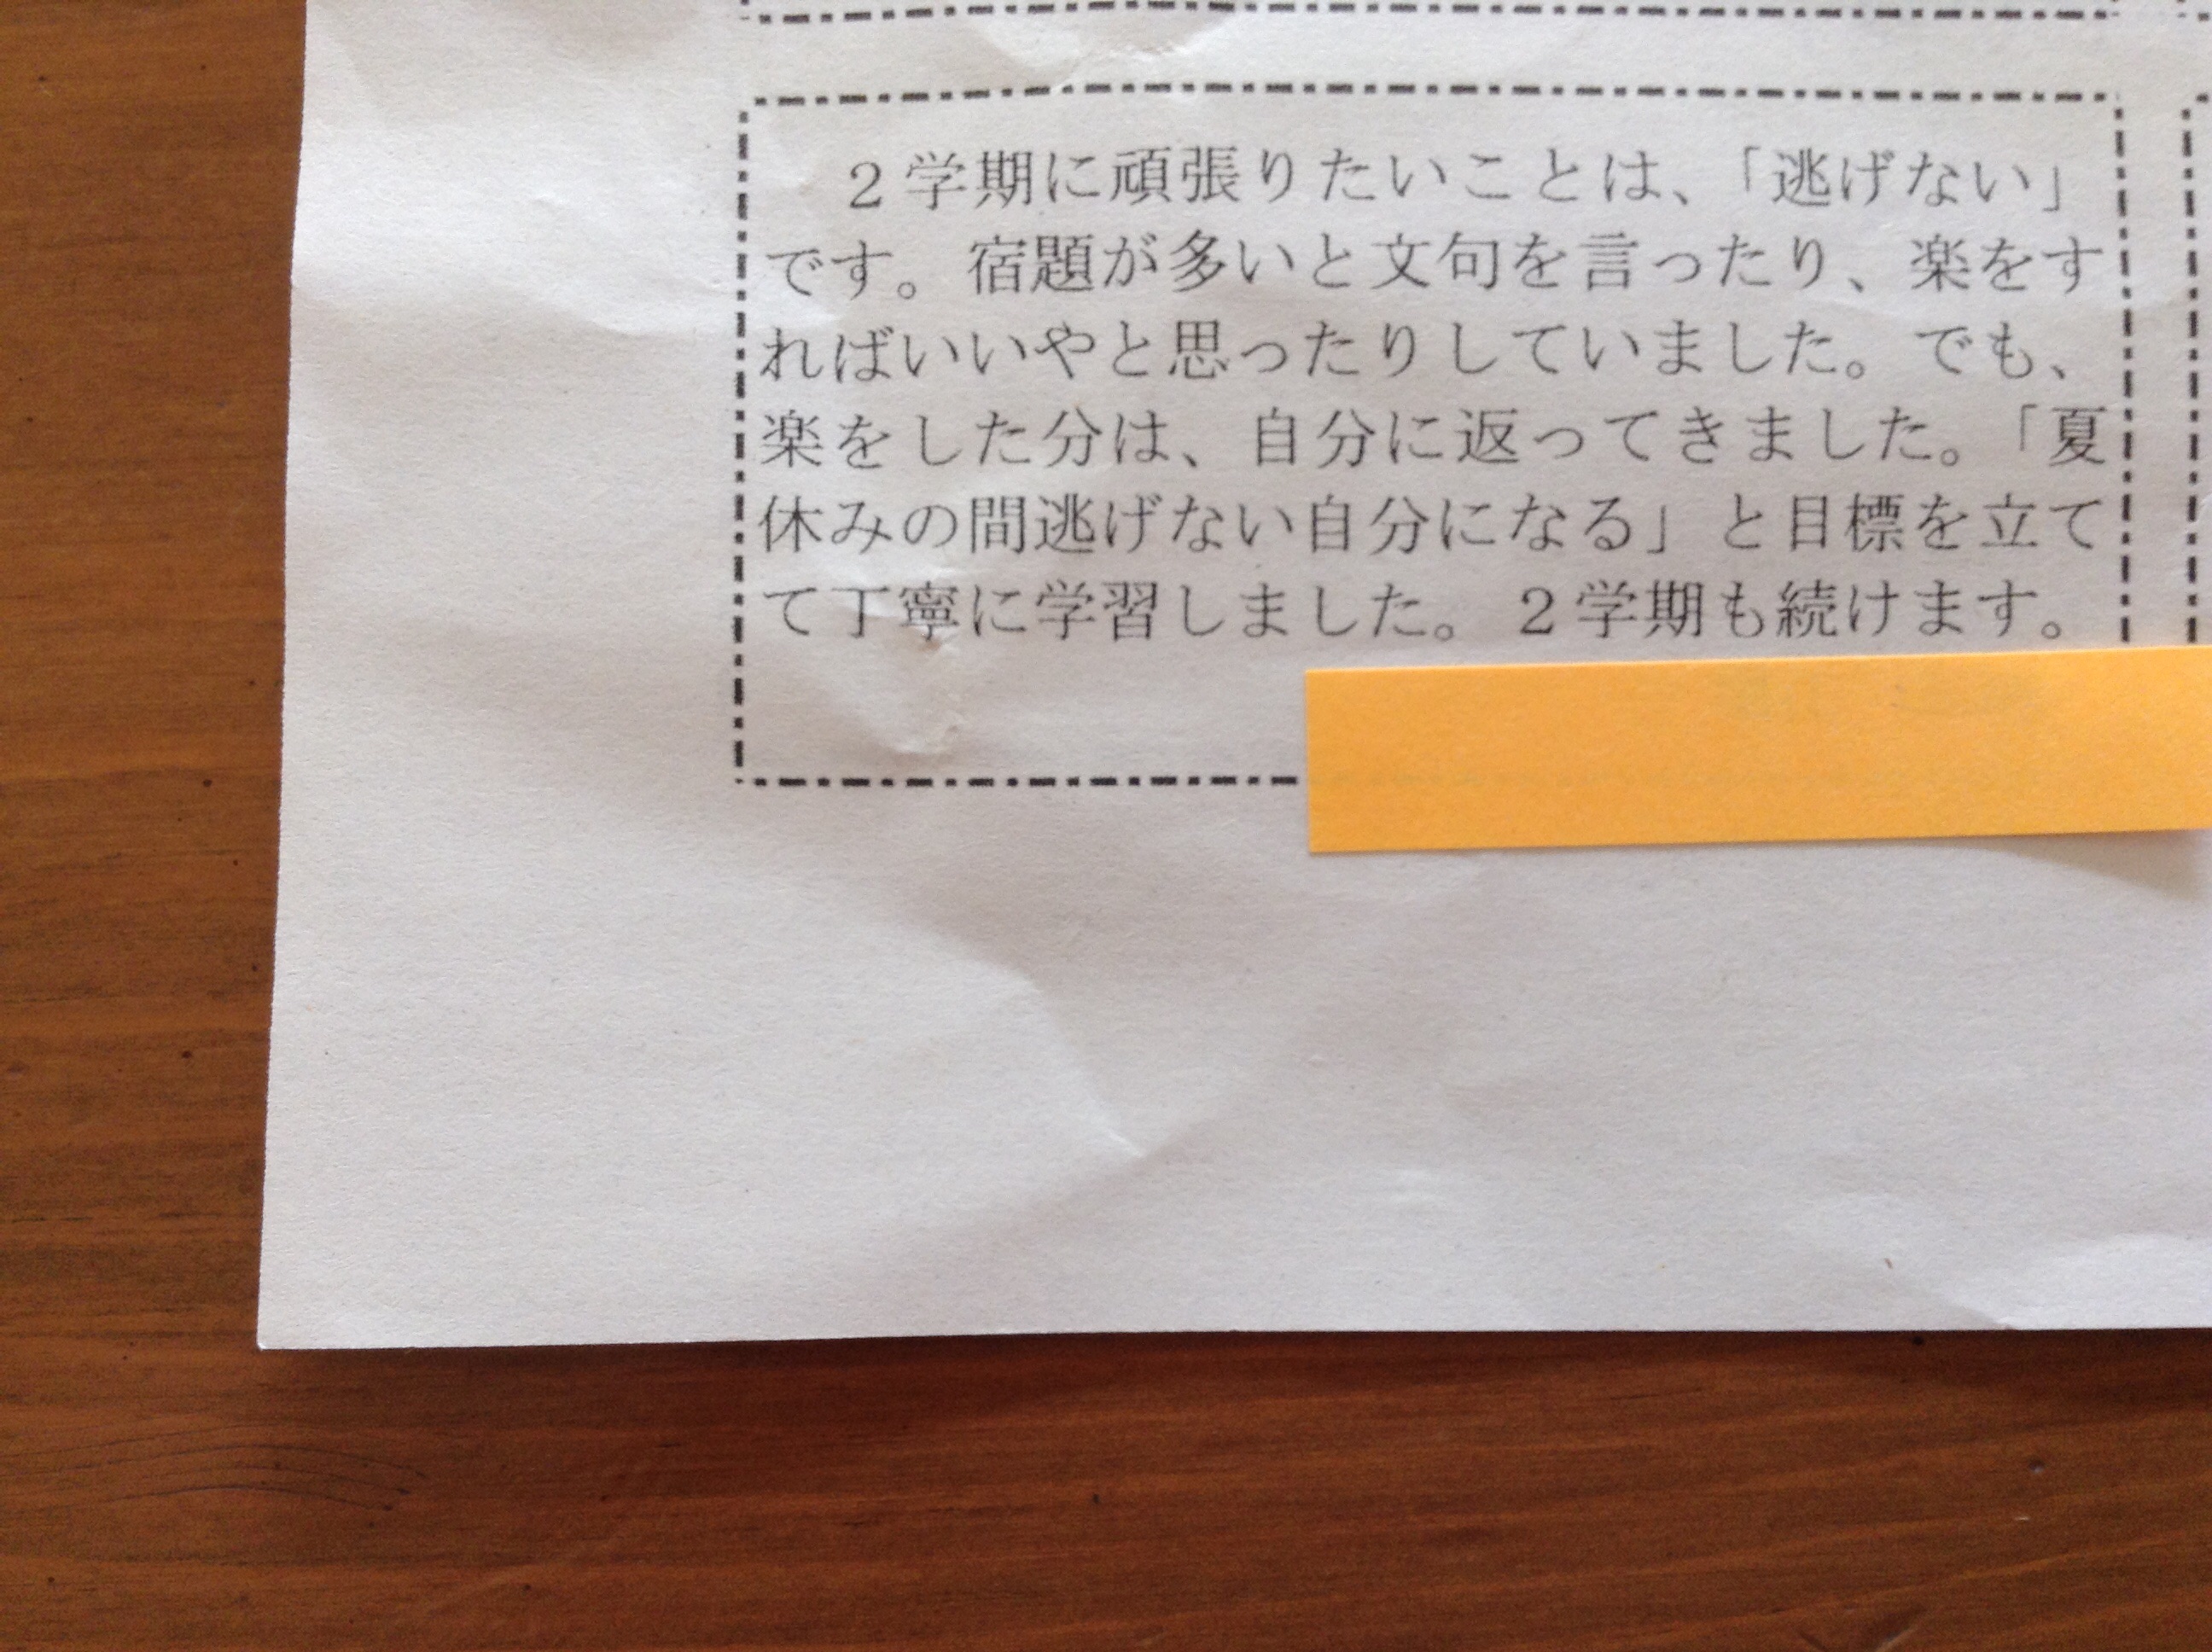 ２学期に頑張りたいことは、「逃げない」
です。宿題が多いと文句を言ったり、楽をす
ればいいやと思ったりしていました。でも、
楽をした分は、自分に返ってきました。「夏
休みの間逃げない自分になる」と目標を立て
て丁寧に学習しました。２学期も続けます。